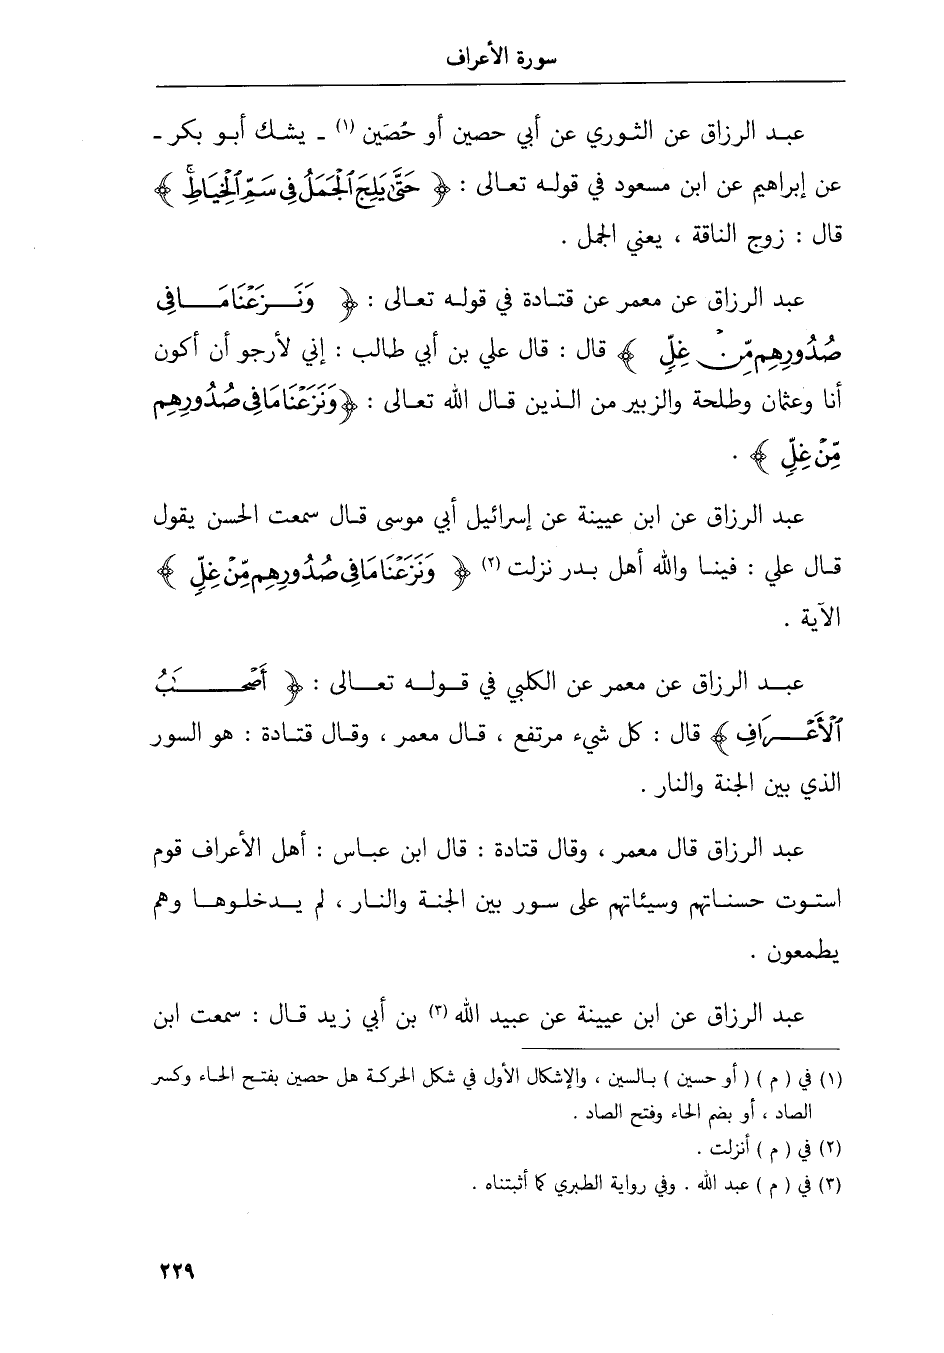 سورة الأعراف
عبد الرزاق عن الثوري عن أبي حصين أو حُصَين (١) ـ يشك أبو بكر ـ
عن إبراهيم عن ابن مسعود في قوله تعالى : ﴿ حَتَّىٰ يَلِجَ ٱلْجَمَلُ فِى سَمِّ ٱلْخِيَاطِ ۚ ﴾
قال : زوج الناقة ، يعني الجمل .
عبد الرزاق عن معمر عن قتادة في قوله تعالى : ﴿ وَنَزَعْنَا مَا فِى
صُدُورِهِم مِّنْ غِلٍّ ﴾ قال : قال علي بن أبي طالب : إني لأرجو أن أكون
أنا وعثمان وطلحة والزبير من الذين قال الله تعالى : ﴿ وَنَزَعْنَا مَا فِى صُدُورِهِم
مِّنْ غِلٍّ ﴾ .
عبد الرزاق عن ابن عيينة عن إسرائيل أبي موسى قال سمعت الحسن يقول
قال علي : فينا والله أهل بدر نزلت (٢) ﴿ وَنَزَعْنَا مَا فِى صُدُورِهِم مِّنْ غِلٍّ ﴾
الآية .
عبد الرزاق عن معمر عن الكلبي في قوله تعالى : ﴿ أَصْحَـٰبُ
ٱلْأَعْرَافِ ﴾ قال : كل شيء مرتفع ، قال معمر ، وقال قتادة : هو السور
الذي بين الجنة والنار .
عبد الرزاق قال معمر ، وقال قتادة : قال ابن عباس : أهل الأعراف قوم
استوت حسناتهم وسيئاتهم على سور بين الجنة والنار ، لم يدخلوها وهم
يطمعون .
عبد الرزاق عن ابن عيينة عن عبيد الله (٣) بن أبي زيد قال : سمعت ابن
(١) في ( م ) ( أو حسين ) بالسين ، والإشكال الأول في شكل الحركة هل حصين بفتح الحاء وكسر
الصاد ، أو بضم الحاء وفتح الصاد .
(٢) في ( م ) أنزلت .
(٣) في ( م ) عبد الله . وفي رواية الطبري كما أثبتناه .
٢٢٩